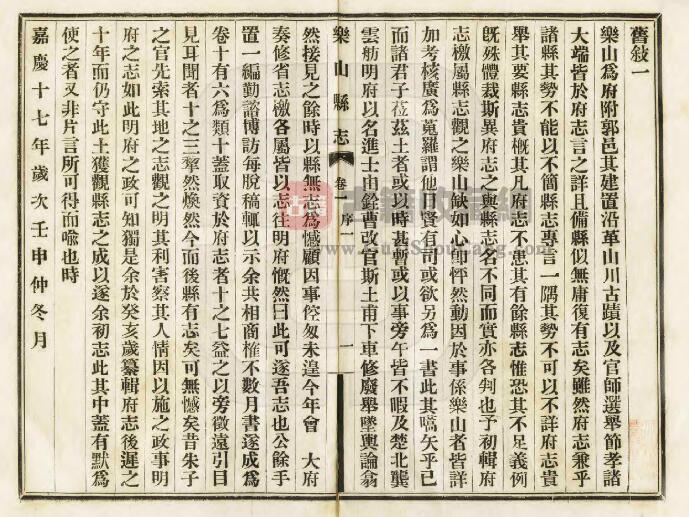 舊敍一
樂山爲府附郭邑其建置沿革山川古蹟以及官師選舉節孝諸
大端皆於府志言之詳且備縣似無庸復有志矣雖然府志兼乎
諸縣其勢不能以不簡縣志專言一隅其勢不可以不詳府志貴
舉其要縣志貴概其凡府志不患其有餘縣志惟恐其不足義例
既殊體裁斯異府志之與縣志名不同而實亦各判也予初輯府
志檄屬縣志觀之樂山缺如心卽怦然動因於事係樂山者皆詳
加考核廣爲蒐羅謂他日賢有司或欲另爲一書此其嚆矢乎已
而諸君子莅茲土者或以時甚暫或以事旁午皆不暇及楚北龔
雲舫明府以名進士由銓曹改官斯土甫下車修廢舉墜輿論翕
樂山縣志
卷一序一
一
然接見之餘時以縣無志爲憾顧因事倥匆未遑今年會 大府
奏修省志檄各屬皆以志往明府慨然曰此可遂吾志也公餘手
置一編勤諮博訪每脫稿輒以示余共相商榷不數月書遂成爲
卷十有六爲類十蓋取資於府志者十之七益之以旁徵遠引目
見耳聞者十之三犂然煥然今而後縣有志矣可無憾矣昔朱子
之官先索其地之志觀之明其利害察其人情因以施之政事明
府之志如此明府之政可知獨是余於癸亥歲纂輯府志後遲之
十年而仍守此土獲觀縣志之成以遂余初志此其中蓋有默爲
使之者又非片言所可得而喻也時
嘉慶十七年歲次壬申仲冬月